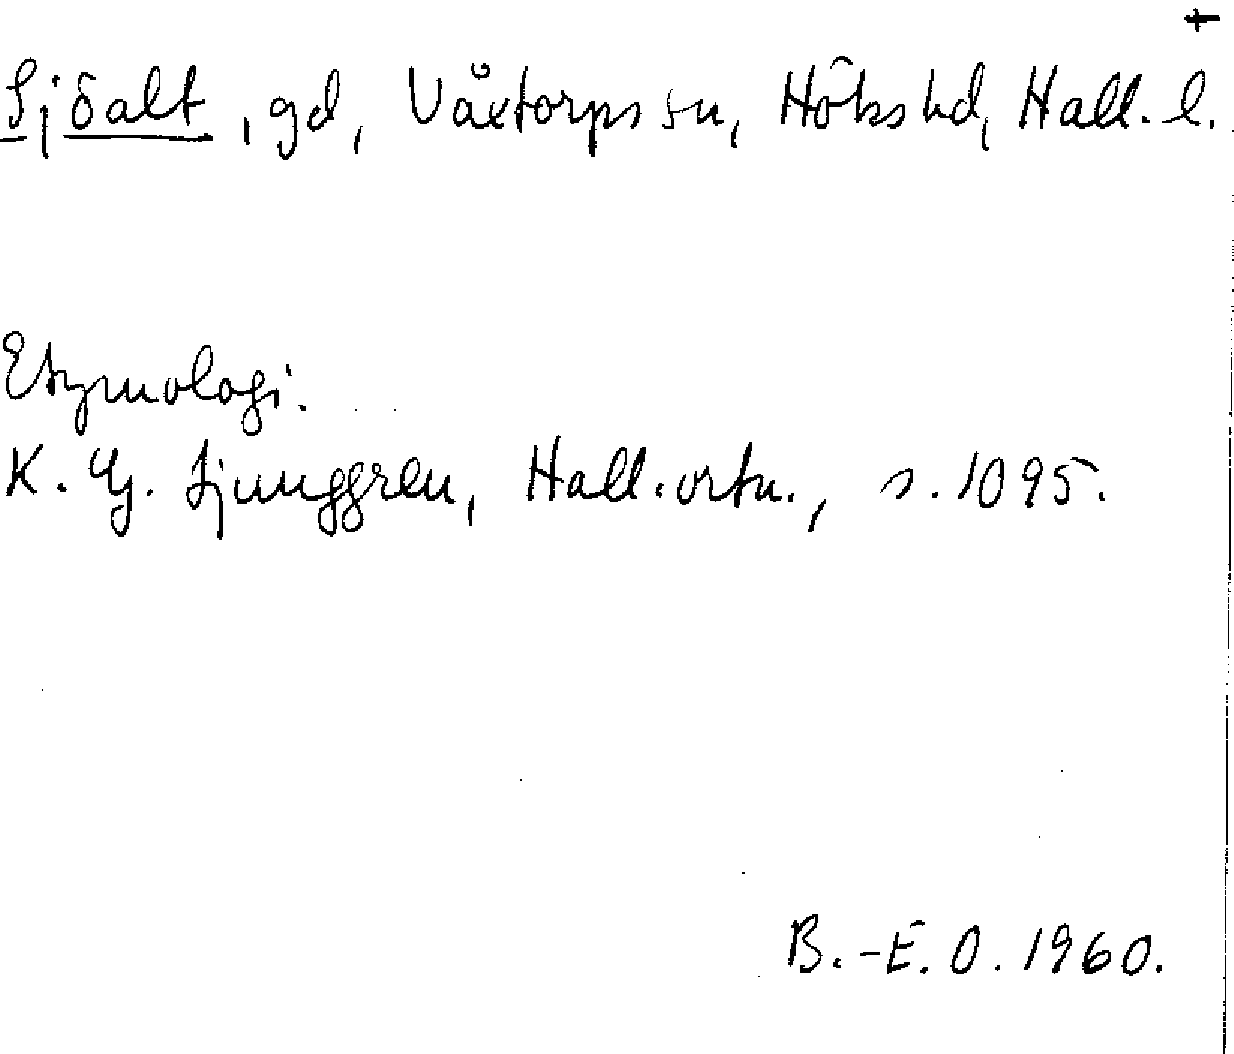 †
Sjöalt, gd, Våxtorps sn, Höks hd, Hall. l.
Etymologi.
K. G. Ljunggren, Hall. ortn., s. 1095.
B.-E. O. 1960.